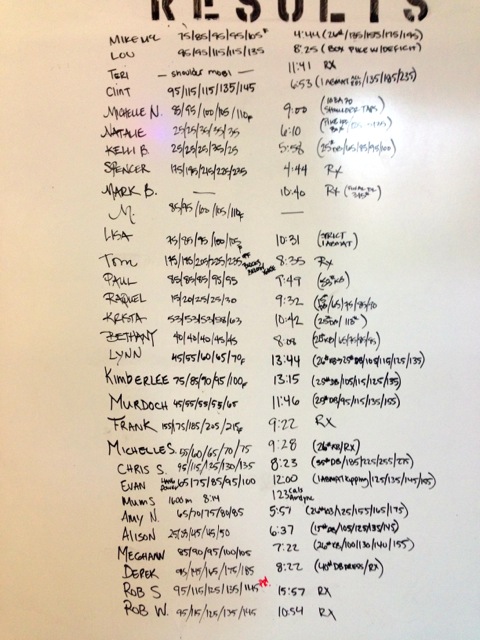 RESULTS
MIKE MC 75/85/95/95/105 4:44 (26#/135/155/175/195)
LOU 95/95/115/115/135 8:25 (BOX PIKE W/DEFICIT)
TERI — shoulder mobi — 11:41 RX
CLINT 95/115/115/135/145 6:53 (1 ABMAT /135/185/235)
MICHELLE N. 85/95/100/105/110 9:00 (SHOULDER TAPS)
NATALIE 25/25/35/35/35 6:10
KELLI B. 25/25/25/35/25 5:58 (25#DB/65/85/95/100)
SPENCER 175/195/215/225/235 4:44 Rx
MARK B. — 10:40 Rx
M. 85/95/100/105/110 —
LISA 75/85/95/100/105 10:31 (STRICT 1 ABMAT)
Tom 175/195/205/225/235 8:35 Rx
PAUL 85/85/85/95/95 9:49
RAQUEL 15/20/25/25/30 9:32 /65/75/85/90
KRISTA 53/53/53/58/63 10:42
BETHANY 40/40/40/45/45 8:08
LYNN 45/55/60/65/70 13:44 /105/115/125/135)
KIMBERLEE 75/85/90/95/100 13:15 (25#DB/105/115/125/135)
MURDOCH 45/55/55/55/65 11:46 (25#DB/95/115/135/155)
FRANK 155/175/185/205/215 9:22 RX
MICHELLE S. 55/60/65/70/75 9:28 (26#KB/RX)
CHRIS S. 95/115/125/130/135 8:23 (35#DB/185/225/255/275)
EVAN 65/75/85/95/100 12:00 (1 ABMAT Kipping/125/135/145/165)
MUMS 1600m 8:14 123 Cals Airdyne
AMY N. 65/70/75/80/85 5:57 (26#KB/125/155/165/175)
ALISON 25/35/45/45/50 6:37 (15#DB/105/125/135/145)
MEGHANN 85/90/95/100/105 7:22 (26#KB/100/130/140/155)
DEREK 95/ /165/175/185 8:22 (45#DB PRESS/RX)
ROB S 95/115/125/135/145 PR 15:57 RX
ROB W. 95/115/125/135/145 10:54 RX